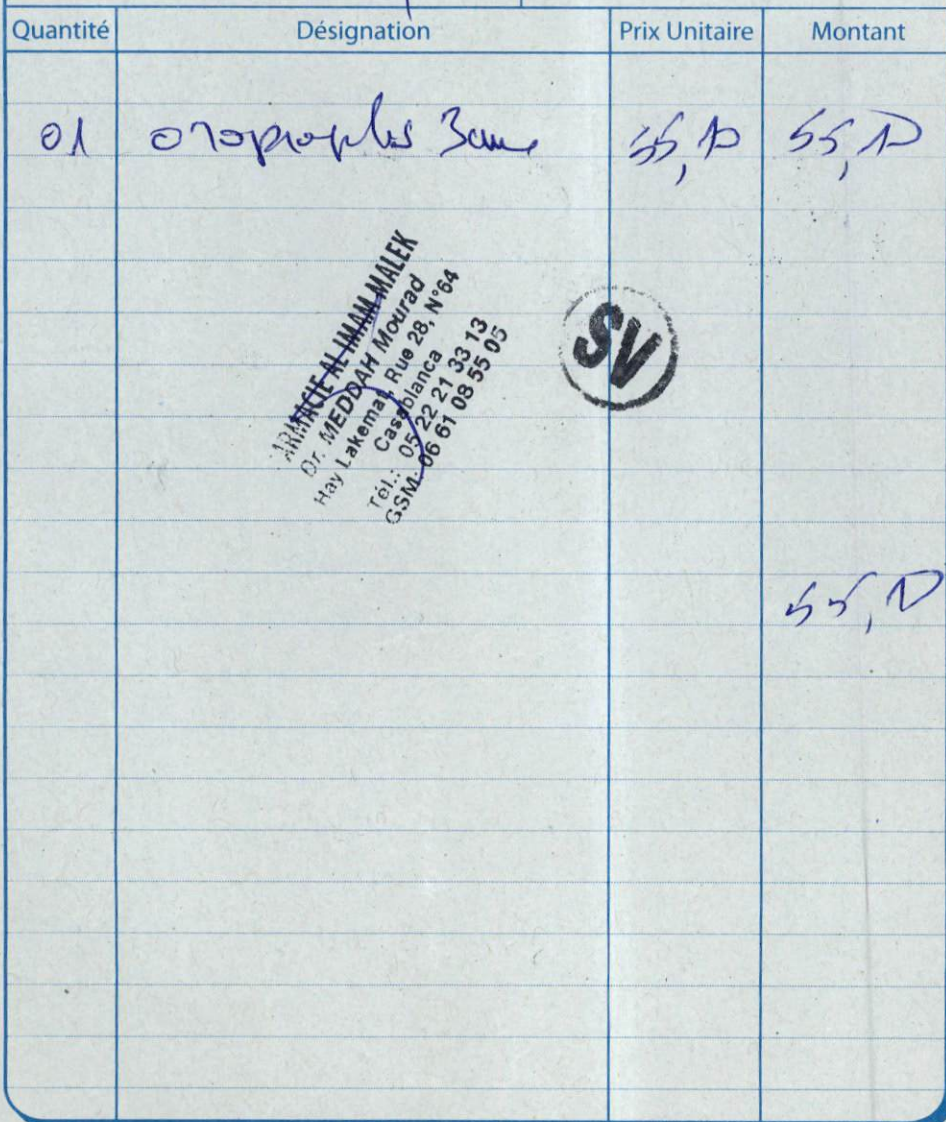 Quantité Désignation Prix Unitaire Montant
01 55,10 55,10
ARMACIE AL IMAM MALEK
Dr. MEDDAH Mourad
Hay Lakemat, Rue 28, N°64
Casablanca
Tél.: 05 22 21 33 13
GSM: 06 61 08 55 05
SV
55,10